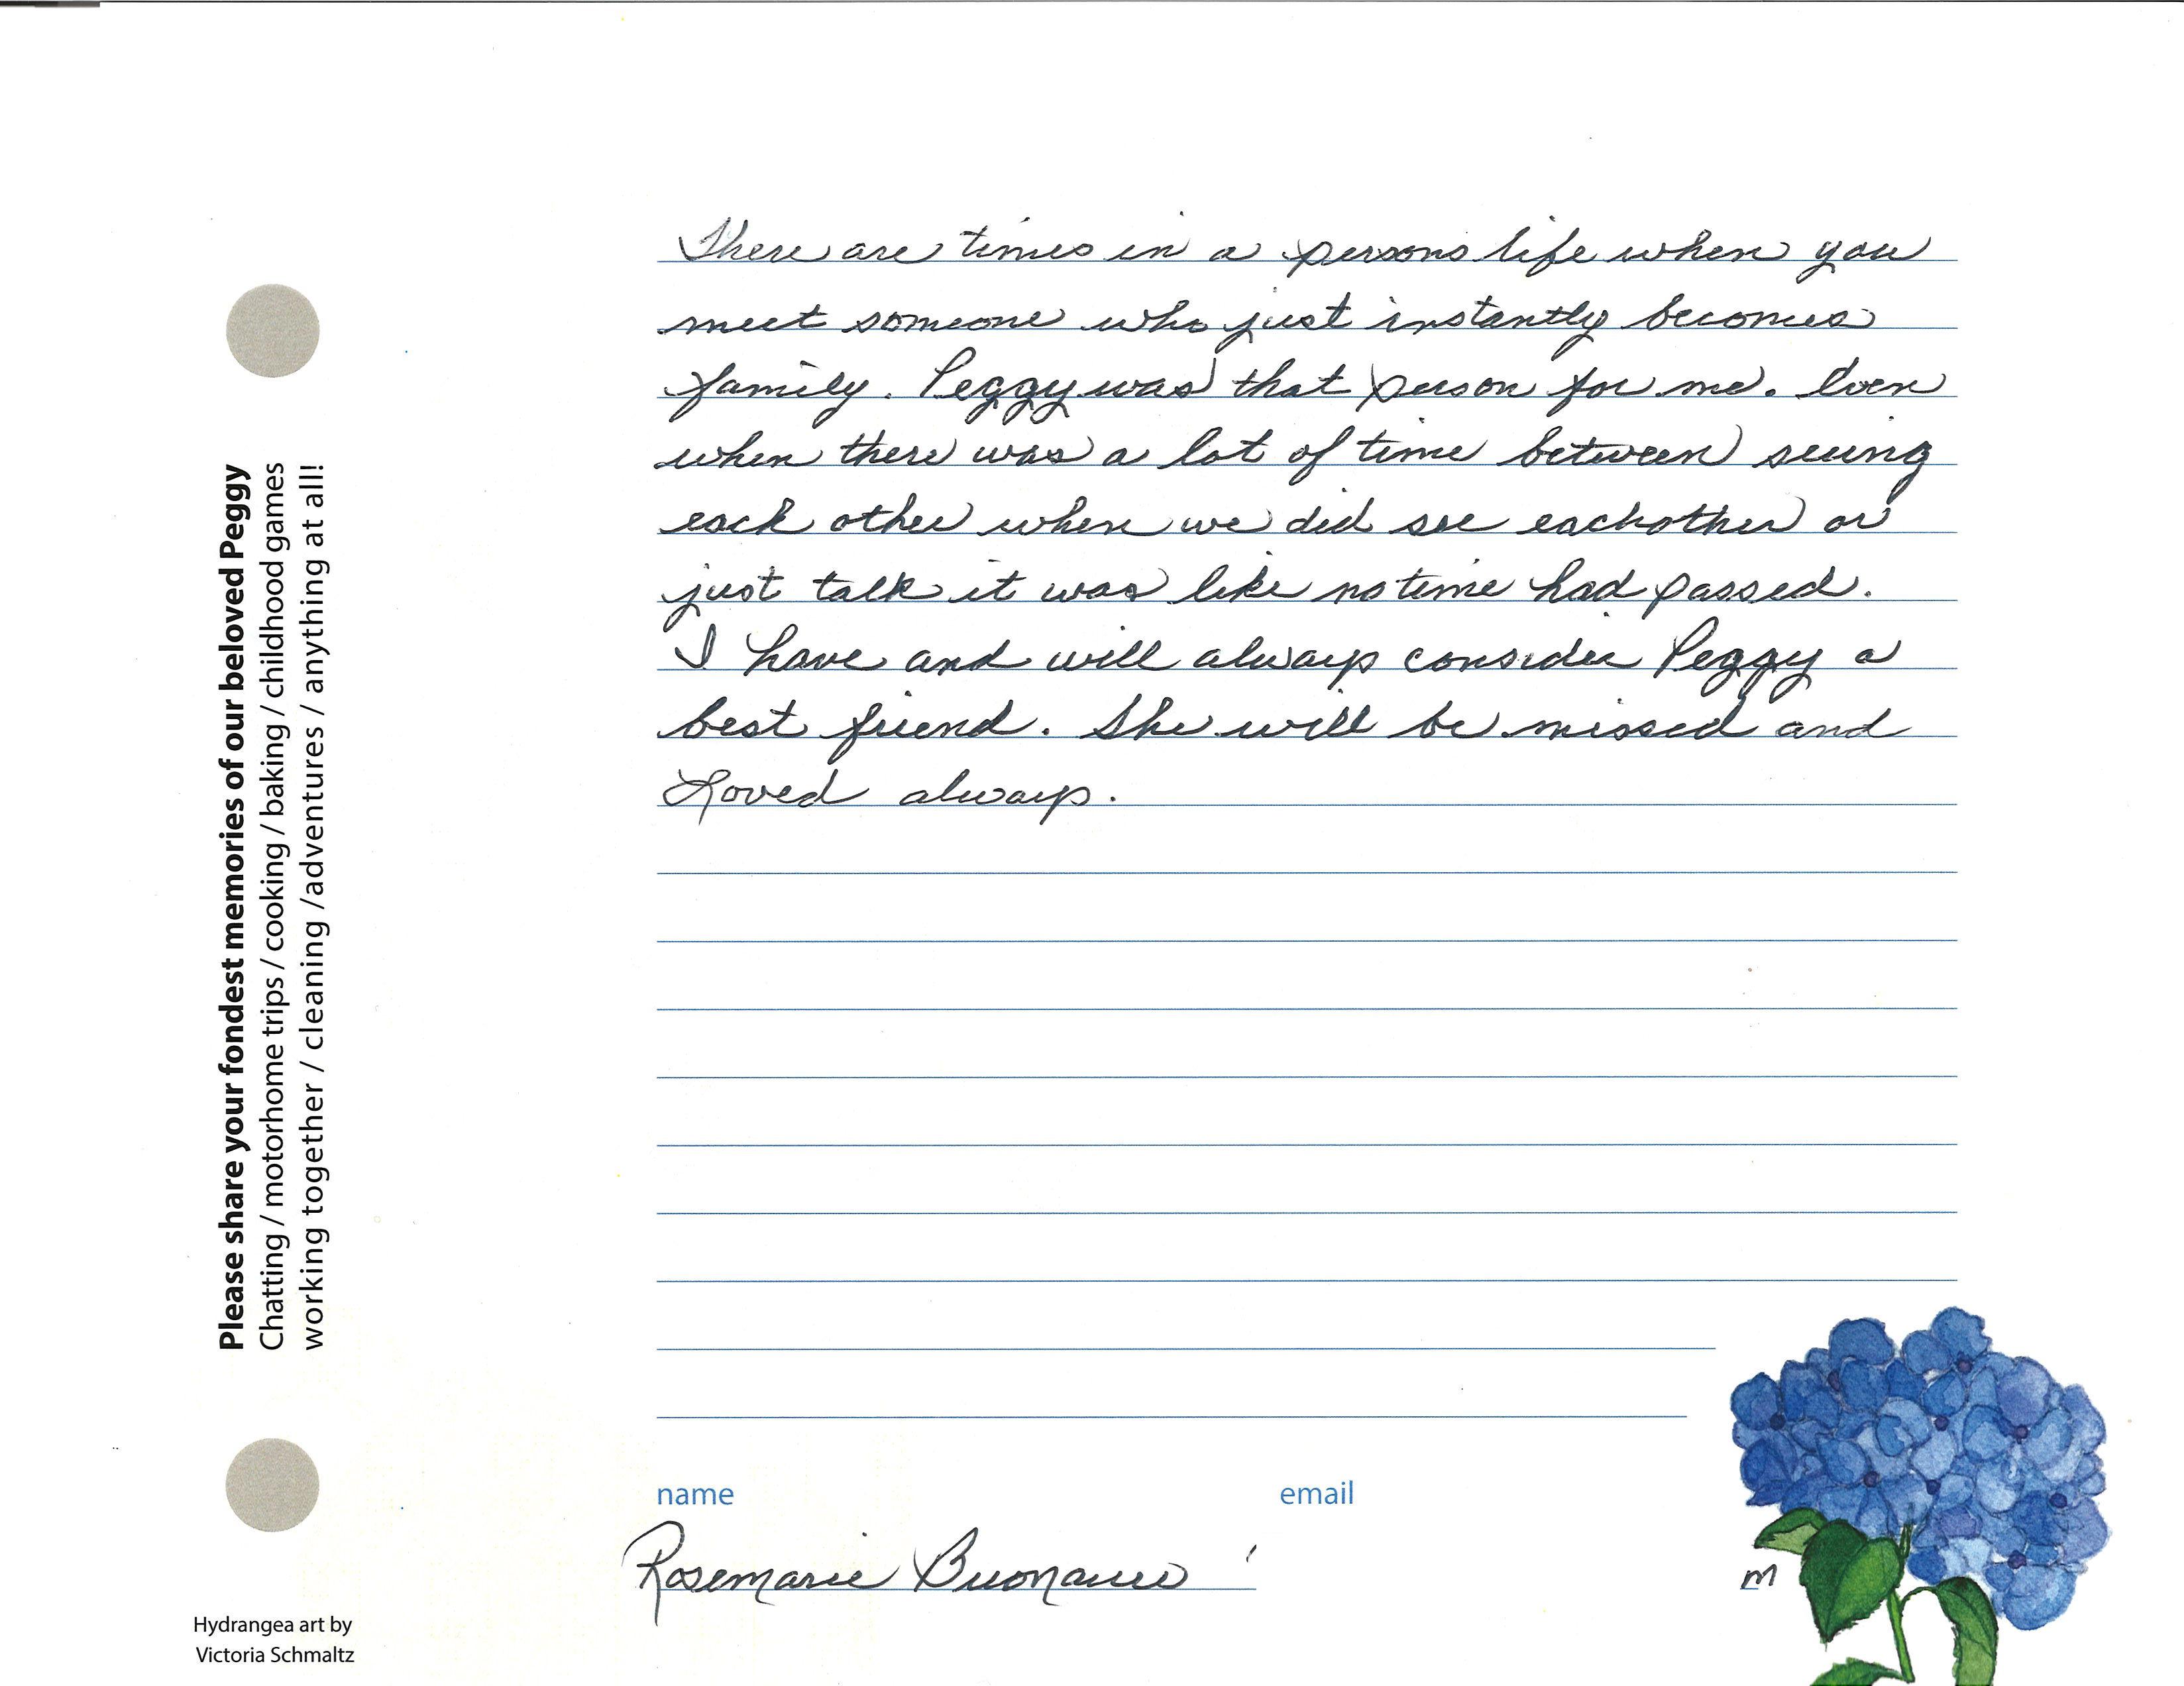 Please share your fondest memories of our beloved Peggy
Chatting / motorhome trips / cooking / baking / childhood games
working together / cleaning /adventures / anything at all!
There are times in a persons life when you
meet someone who just instantly becomes
family. Peggy was that person for me. Even
when there was a lot of time between seeing
each other when we did see eachother or
just talk it was like no time had passed.
I have and will always consider Peggy a
best friend. She will be missed and
Loved always.
name
email
Rosemarie
m
Hydrangea art by
Victoria Schmaltz